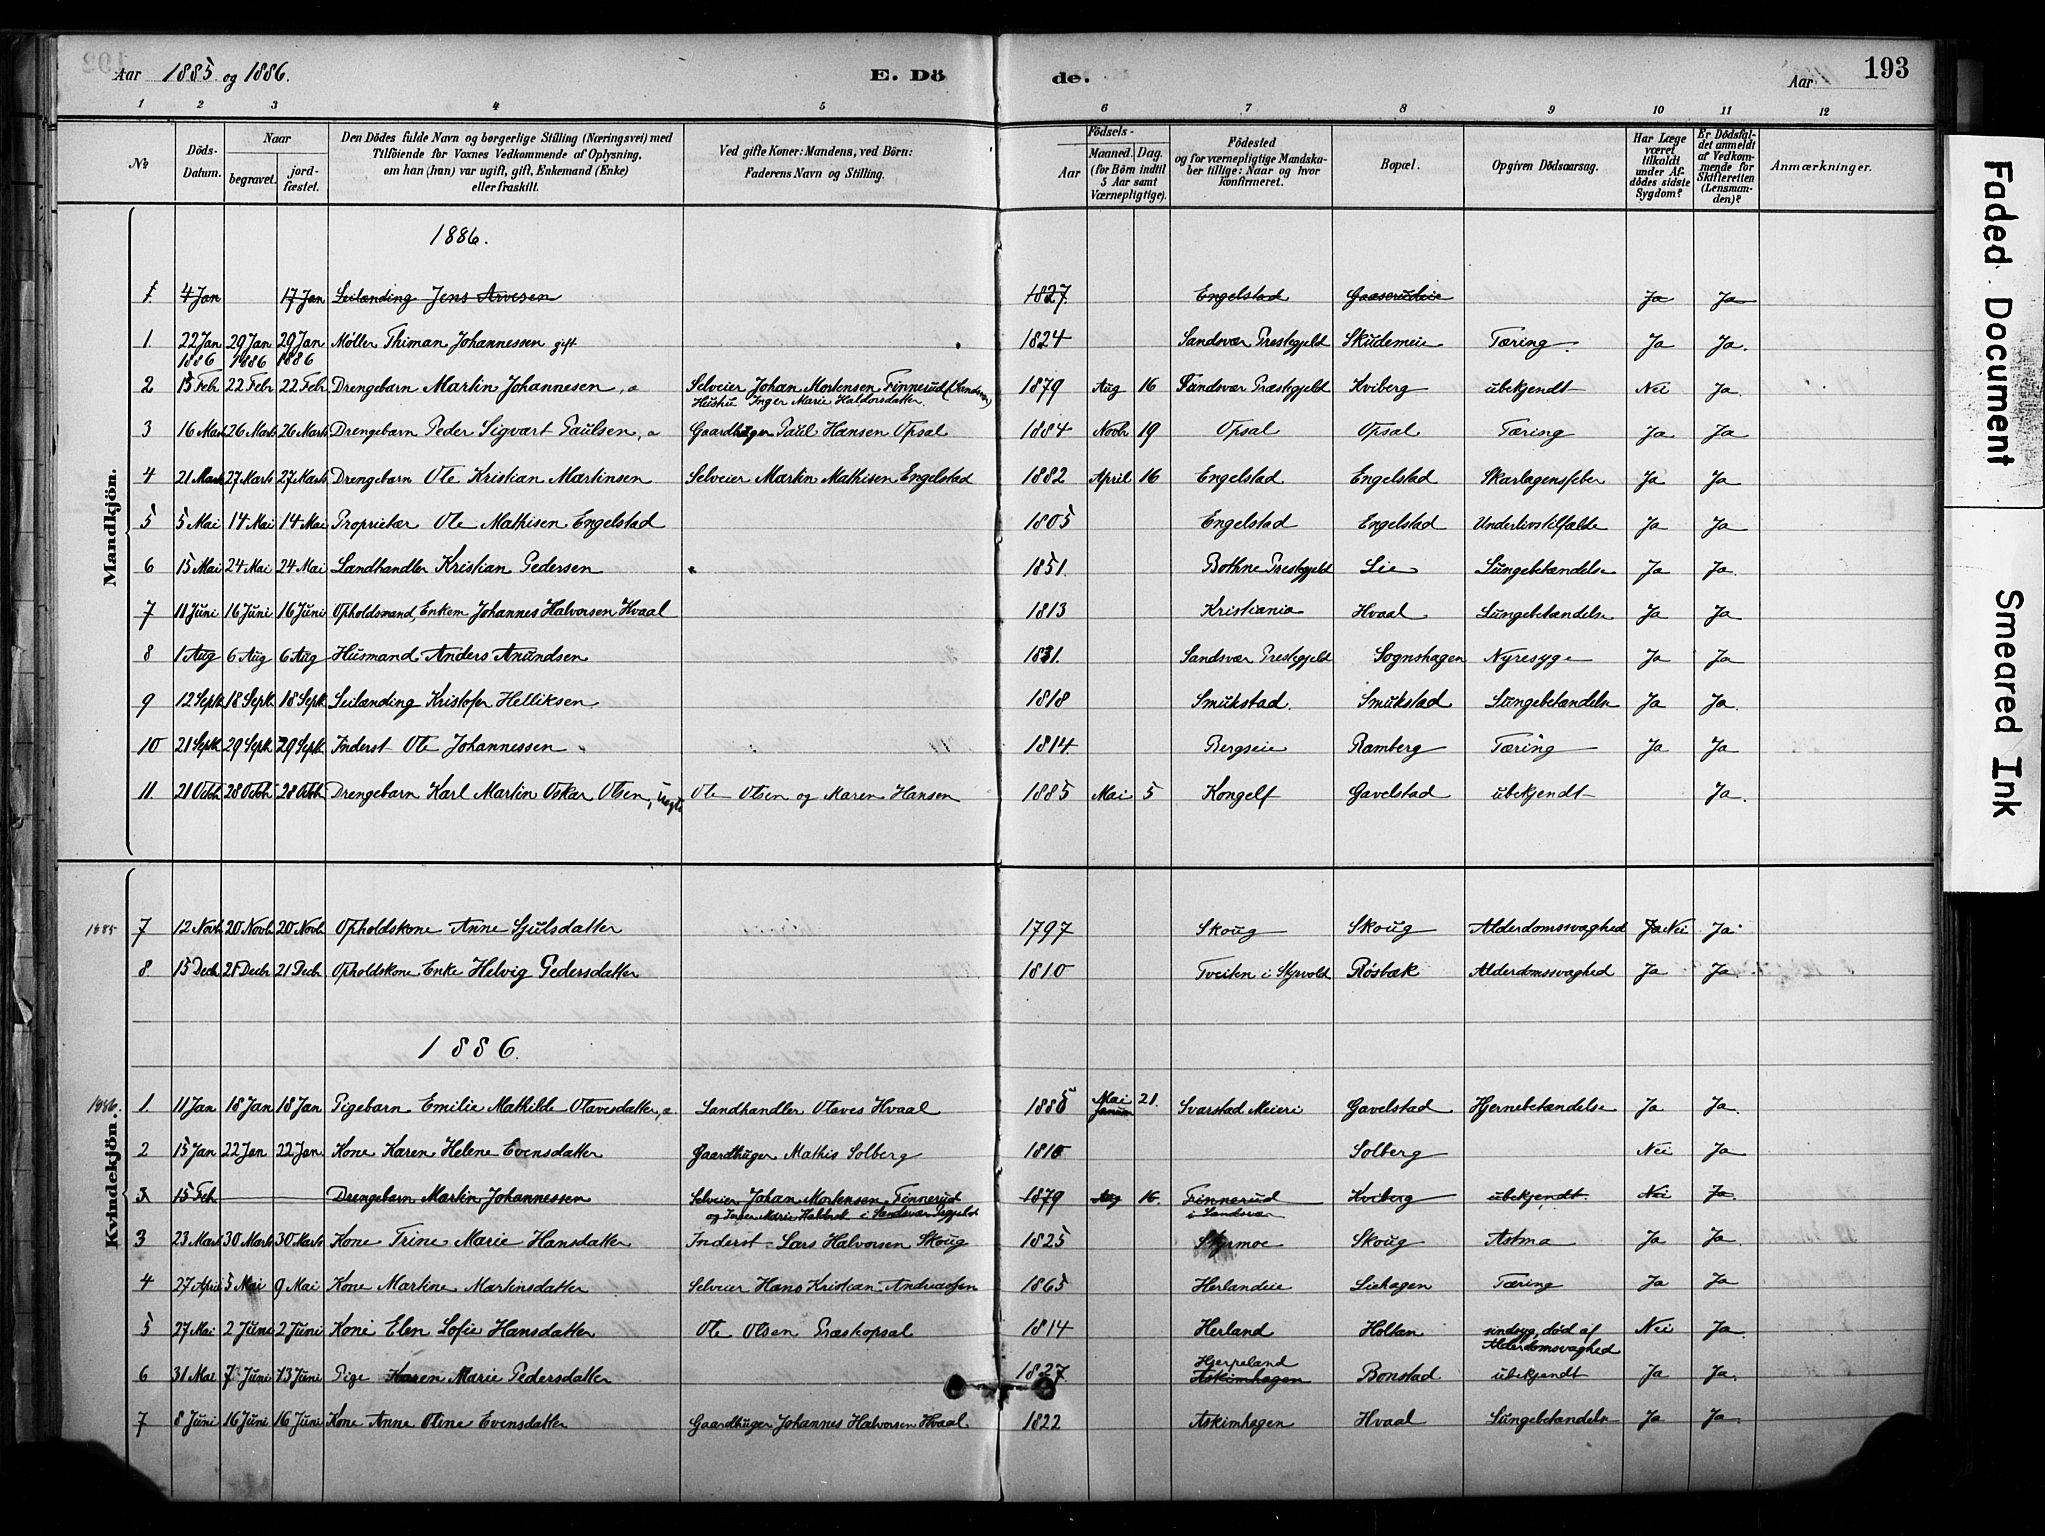 Aar 1885 og 1886. E. Dö de. Aar 193
1 2 3 4 5 6 7 8 9 10 11 12
№ Döds-Datum. Naar begravet. jord-fæstet. Den Dödes fulde Navn og borgerlige Stilling (Næringsvei) med Tilföiende for Voxnes Vedkommende af Oplysning, om han (hun) var ugift, gift, Enkemand (Enke) eller fraskilt. Ved gifte Koner: Mandens, ved Börn: Faderens Navn og Stilling. Födsels- Aar Maaned. Dag. (for Börn indtil 5 Aar samt Værnepligtige). Födested og for værnepligtige Mandskaber tillige: Naar og hvor konfirmeret. Bopæl. Opgiven Dödsaarsag. Har Læge været tilkaldt under Afdödes sidste Sygdom? Er Dödsfaldet anmeldt af Vedkommende for Skifteretten (Lensmanden)? Anmærkninger.
Mandkjön.
1886.
1. 4 Jan 17 Jan Leilænding Jens Arvesen 1827 Engelstad Gaaserudeie Ja Ja
1. 22 Jan 1886 29 Jan 1886 29 Jan 1886 Møller Thiman Johannessen gift 1824 Sandsvær Prestegjeld Skudemeie Tæring Ja Ja.
2 15 Febr 22 Febr 22 Febr Drengebarn Martin Johannesen, Selveier Johan Mortensen Finnerud Hustru Inger Marie Haldorsdatter. 1879 Aug 16 Sandsvær Præstegjeld Kviberg ubekjendt Nei Ja
3 16 Marts 26 Marts 26 Marts Drengebarn Peder Sigvart Paulsen, Gaardbruger Paul Hansen Opsal 1884 Novbr 19 Opsal Opsal Tæring Ja Ja
4 21 Marts 27 Marts 27 Marts Drengebarn Ole Kristian Martinsen Selveier Martin Mathisen Engelstad 1882 April 16 Engelstad Engelstad Skarlagensfeber Ja Ja
5 5 Mai 14 Mai 14 Mai Proprietær Ole Mathisen Engelstad 1805 Engelstad Engelstad Underlivstilfælde Ja Ja
6 15 Mai 24 Mai 24 Mai Landhandler Kristian Pedersen 1851. Bothne Prestegjeld Lie Lungebetændelse Ja Ja.
7 11 Juni 16 Juni 16 Juni Opholdsmand, Enkem Johannes Halvorsen Hvaal 1813 Kristiania Hvaal Lungebetændelse Ja Ja
8 1 Aug 6 Aug 6 Aug Husmand Anders Anundsen 1831. Sandsvær Prestegjeld Sognshagen Nyresyge Ja Ja
9 12 Septb 18 Septb 18 Septb Leilænding Kristofer Helliksen 1818 Smukstad. Smukstad Lungebetændelse Ja Ja.
10 21 Septb 29 Septb 29 Septb Inderst Ole Johannessen 1814. Bergseie Ramberg Tæring Ja Ja
11 21 Octb 28 Octb 28 Octb Drengebarn Karl Martin Oskar Olsen, uægte Ole Olsen og Maren Hansen 1885 Mai 5 Kongelf Gavelstad ubekjendt Ja.
Kvindekjön.
1885 7 12 Novb 20 Novb 20 Novb Opholdskone Anne Sjulsdatter 1797 Skoug Skoug Alderdomssvaghed Ja Nei Ja
8 15 Decb 21 Decb Opholdskone Enke Helvig Pedersdatter 1810 Tveiten i Styrvold Røsbæk Alderdomssvaghed Ja Ja.
1886.
1886. 1. 11 Jan 18 Jan 18 Jan Pigebarn Emilie Mathilde Olavesdatter, Landhandler Olaves Hvaal 1885 Mai Januar 21. Svarstad Meieri Gavelstad Hjernebetændelse Ja Ja.
2 15 Jan 22 Jan 22 Jan Kone Karen Helene Evensdatter Gaardbruger Mathis Solberg 1810 Solberg Nei Ja
3 15 Feb. Drengebarn Martin Johannessen Selveier Johan Mortensen Finnerud og Inger Marie i Sandsvær 1879 Aug 16. Finnerud i Sandsvær Kviberg ubekjendt. Nei Ja
3 23 Marts 30 Marts 30 Marts Kone Trine Marie Hansdatter Inderst Lars Halvorsen Skoug 1825 Styrmoe Skoug Astma Ja Ja.
4 27 April 5 Mai 9 Mai Kone Martine Martinsdatter Selveier Hans Kristian Andreassen 1865 Herlandeie Liehagen Tæring Ja Ja
5 27 Mai 2 Juni 2 Juni Kone Elen Sofie Hansdatter Ole Olsen Præskopsal 1814 Herland Holtan sindsyg, død af Alderdomsvaghed Nei Ja
6 31 Mai 7 Juni 13 Juni Pige Karen Marie Pedersdatter 1827. Hjerpeland Askimhagen Bonstad ubekjendt Ja Ja.
7 8 Juni 16 Juni 16 Juni Kone Anne Oline Evensdatter Gaardbruger Johannes Halvorsen Hvaal 1822 Askimhagen Hvaal Lungebetændelse Ja Ja.
Faded Document
Smeared Ink